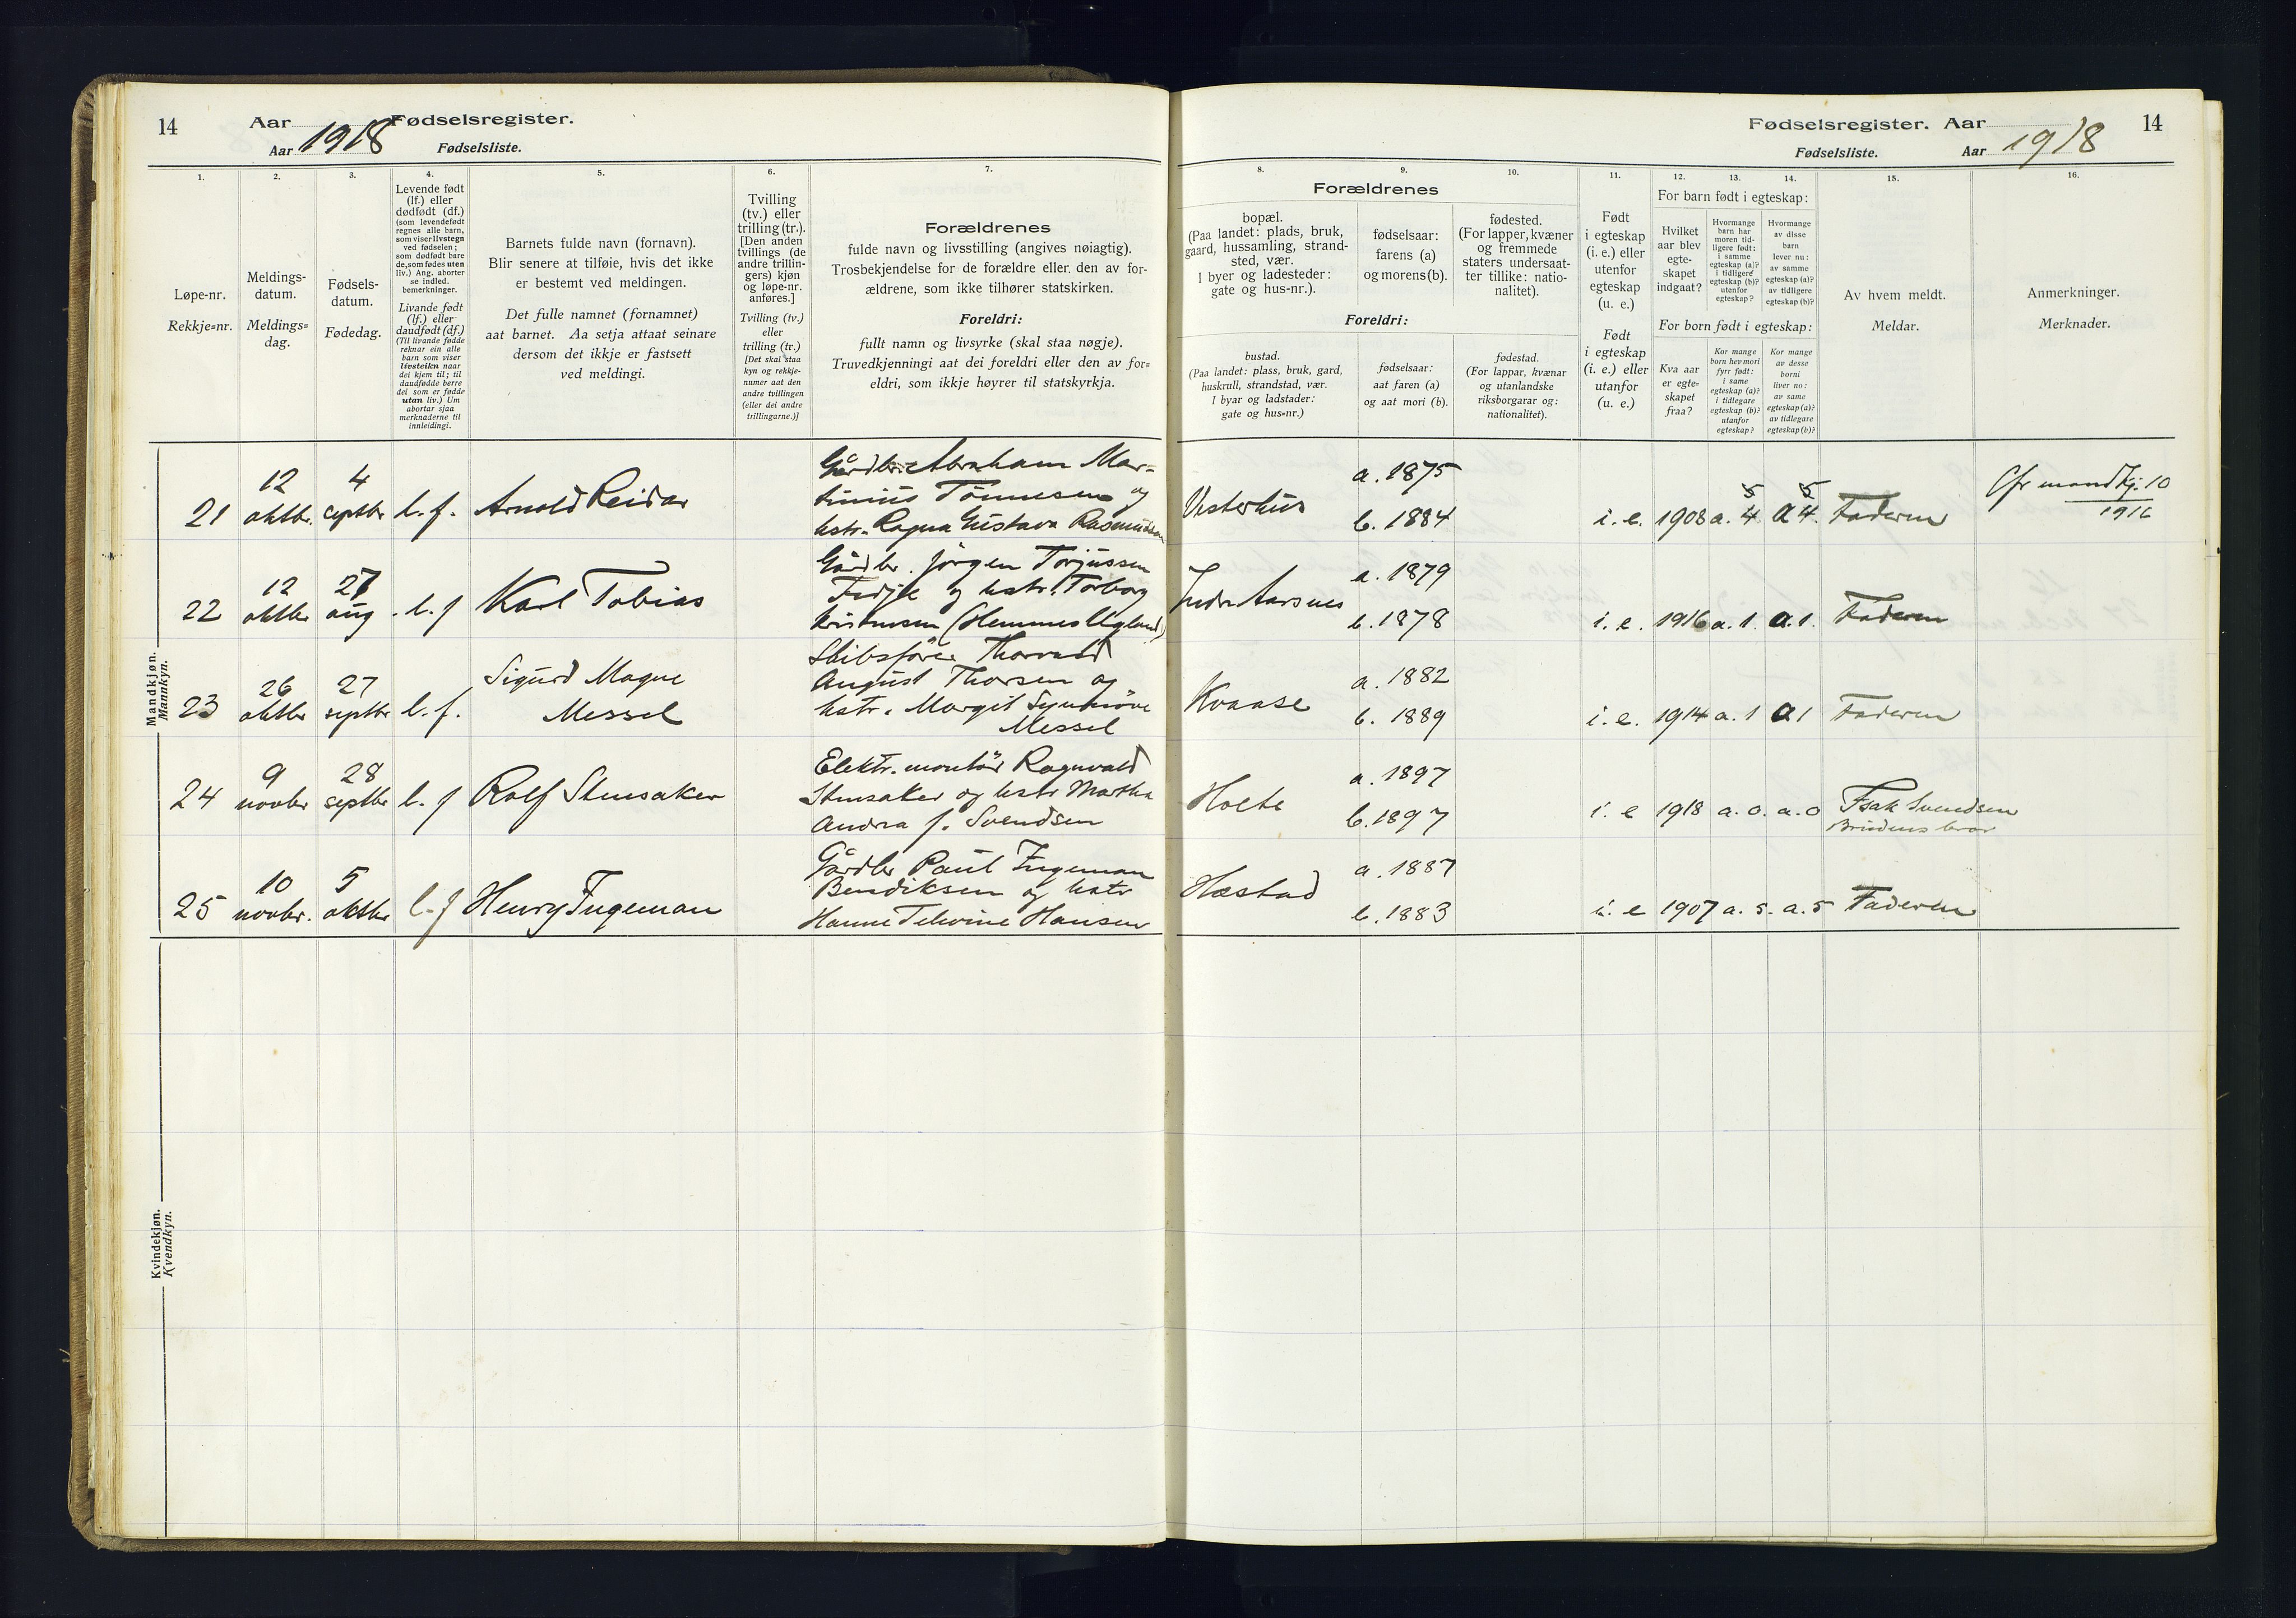 14
Aar 1918 Fødselsregister.
Aar Fødselsliste.
1.
2.
3.
4.
5.
6.
7.
Løpe-nr.
Rekkje=nr.
Meldings-
datum.
Meldings=
dag.
Fødsels-
datum.
Fødedag.
Levende født
(lf.) eller
dødfødt (df.)
(som levendefødt
regnes alle barn,
som viser livstegn
ved fødselen;
som dødfødt bare
de, som fødes uten
liv.) Ang. aborter
se indled.
bemerkninger.
Livande født
(lf.) eller
daudfødt (df.)
(Til livande fødde
reknar ein alle
barn som viser
livsteikn naar
dei kjem til; til
daudfødde berre
dei som er fødde
utan liv.) Um
abortar sjaa
merknaderne til
innleidingi.
Barnets fulde navn (fornavn).
Blir senere at tilføie, hvis det ikke
er bestemt ved meldingen.
Det fulle namnet (fornamnet)
aat barnet. Aa setja attaat seinare
dersom det ikkje er fastsett
ved meldingi.
Tvilling
(tv.) eller
trilling (tr.).
[Den anden
tvillings (de
andre trillin-
gers) kjøn
og løpe-nr.
anføres.]
Tvilling (tv.)
eller
trilling (tr.)
[Det skal staa
kyn og rekkje-
numer aat den
andre tvillingen
(eller dei andre
trillingarne.)]
Forældrenes
fulde navn og livsstilling (angives nøiagtig).
Trosbekjendelse for de forældre eller. den av for-
ældrene, som ikke tilhører statskirken.
Foreldri:
fullt namn og livsyrke (skal staa nøgje).
Truvedkjenningi aat dei foreldri eller den av for=
eldri, som ikkje høyrer til statskyrkja.
Mandkjøn.
Mannkyn.
21 12 oktbr. 4 septbr l. f. Arnold Reidar
Gårdbr. Abraham Mar-
tinius Tönnesen og
hstr. Ragna Gustava Rasmussen
22 12 oktbr 27 aug. l. f Karl Tobias
Gårdbr. Jörgen Torjussen
Fedje og hstr. Torborg
Kristensen (Hemmes Ugland)
23 26 oktbr 27 septbr l. f. Sigurd Magne
Messel
Skibsförer Thorvald
August Thorsen og
hstr. Margit Synnöve
Messel
24 9 novbr 28 septbr l. f Rolf Stensaker
Elektr. montör Ragnvald
Stensaker og hstr Martha
Andra f. Svendsen
25 10 novbr. 5 oktbr l. f Henry Ingeman
Gårdbr Paul Ingeman
Bendiksen og hstr
Hanne Telvine Hansen
Kvindekjøn.
Kvendkyn.
Fødselsregister. Aar 1918 14
Fødselsliste. Aar
8.
9.
10.
11.
12.
13.
14.
15.
16.
Forældrenes
bopæl.
(Paa landet: plads, bruk,
gaard, hussamling, strand-
sted, vær.
I byer og ladesteder:
gate og hus-nr.).
fødselsaar:
farens (a)
og morens (b).
fødested.
(For lapper, kvæner
og fremmede
staters undersaat-
ter tillike: natio-
nalitet).
Foreldri:
bustad.
(Paa landet: plass, bruk, gard,
huskrull, strandstad, vær.
I byar og ladstader:
gate og hus=nr.)
fødselsaar:
aat faren (a)
og aat mori (b).
fødestad.
(For lappar, kvænar
og utanlandske
riksborgarar og:
nationalitet).
Født
i egteskap
(i. e.) eller
utenfor
egteskap
(u. e.)
Født
i egteskap
(i. e.) eller
utanfor
(u. e.)
For barn født i egteskap:
Hvilket
aar blev
egte-
skapet
indgaat?
Hvormange
barn har
moren tid-
ligere født:
i samme
egteskap (a)?
i tidligere
egteskap (b)?
utenfor
egteskap?
Hvormange
av disse
barn
lever nu:
av samme
egteskap (a)?
av tidligere
egteskap (b)?
For born født i egteskap:
Kva aar
er egte=
skapet
fraa?
Kor mange
born hev mori
fyrr født:
i same
egteskap (a)?
i tidlegare
egteskap (b)?
utanfor
egteskap?
Kor mange
av desse
borni
liver no:
av same
egteskap (a)?
av tidlegare
egteskap (b)?
Av hvem meldt.
Meldar.
Anmerkninger.
Merknader.
Vesterhus a. 1875 b. 1884 i. e. 1908 a. 4 5 a 4. 5 Faderen Cfr mandkj. 10
1916
Indre Aarsnes a. 1879 b. 1878 i. e. 1916 a. 1. a. 1. Faderen
Kvaase a. 1882 b. 1889 i. e. 1914 a. 1 a 1 Faderen
Holte a. 1897 b. 1897 i. e 1918 a. 0. a. 0 Isak Svendsen
Brudens bror
Hæstad a. 1887 b. 1883 i. e 1907 a. 5. a. 5 Faderen